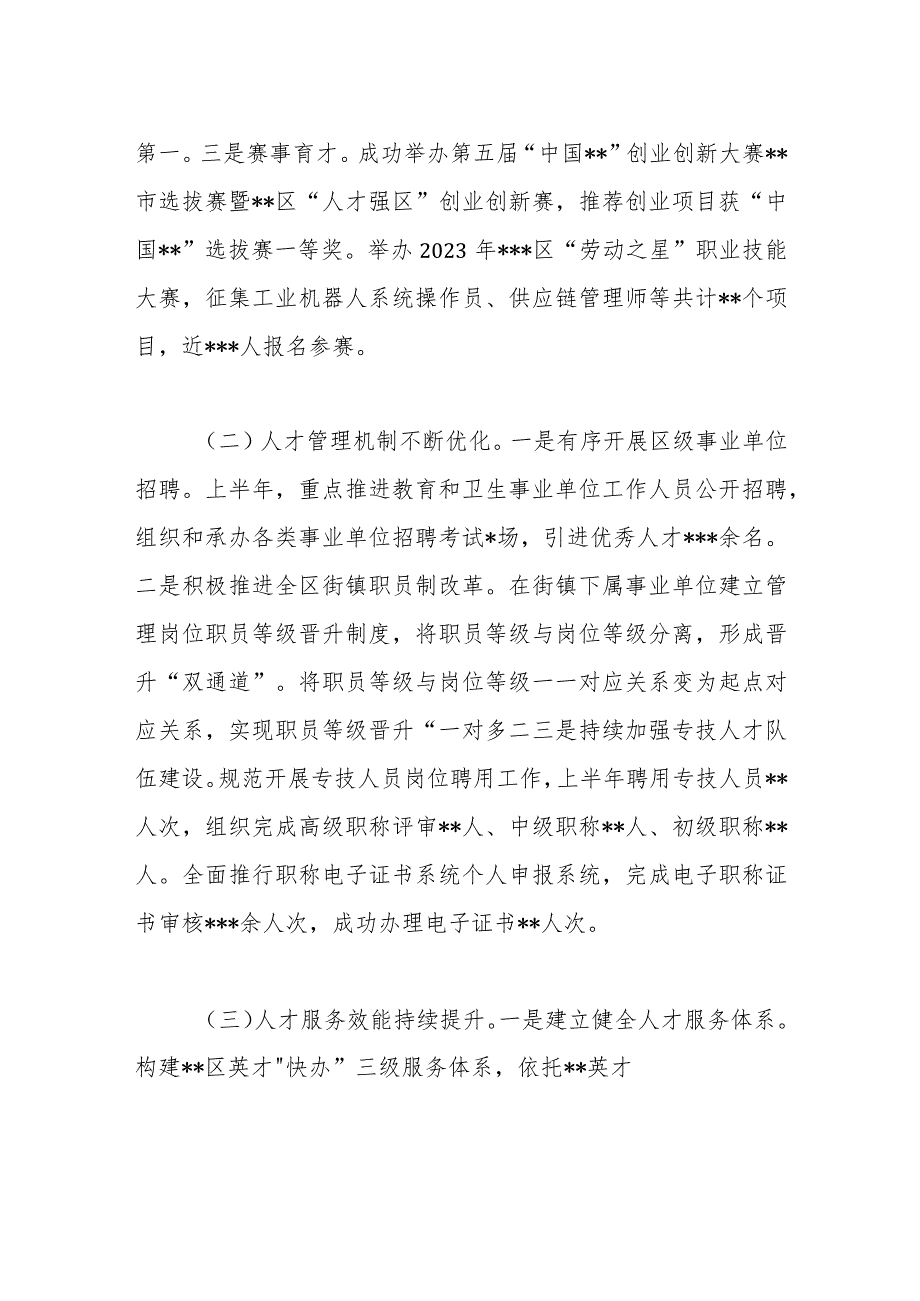 第一。三是赛事育才。成功举办第五届“中国**”创业创新大赛**
市选拔赛暨**区“人才强区”创业创新赛，推荐创业项目获“中
国**”选拔赛一等奖。举办 2023 年***区“劳动之星”职业技能
大赛，征集工业机器人系统操作员、供应链管理师等共计**个项
目，近***人报名参赛。
（二）人才管理机制不断优化。一是有序开展区级事业单位
招聘。上半年，重点推进教育和卫生事业单位工作人员公开招聘，
组织和承办各类事业单位招聘考试*场，引进优秀人才***余名。
二是积极推进全区街镇职员制改革。在街镇下属事业单位建立管
理岗位职员等级晋升制度，将职员等级与岗位等级分离，形成晋
升“双通道”。将职员等级与岗位等级一一对应关系变为起点对
应关系，实现职员等级晋升“一对多二三是持续加强专技人才队
伍建设。规范开展专技人员岗位聘用工作，上半年聘用专技人员**
人次，组织完成高级职称评审**人、中级职称**人、初级职称**
人。全面推行职称电子证书系统个人申报系统，完成电子职称证
书审核***余人次，成功办理电子证书**人次。
（三）人才服务效能持续提升。一是建立健全人才服务体系。
构建**区英才"快办”三级服务体系，依托**英才